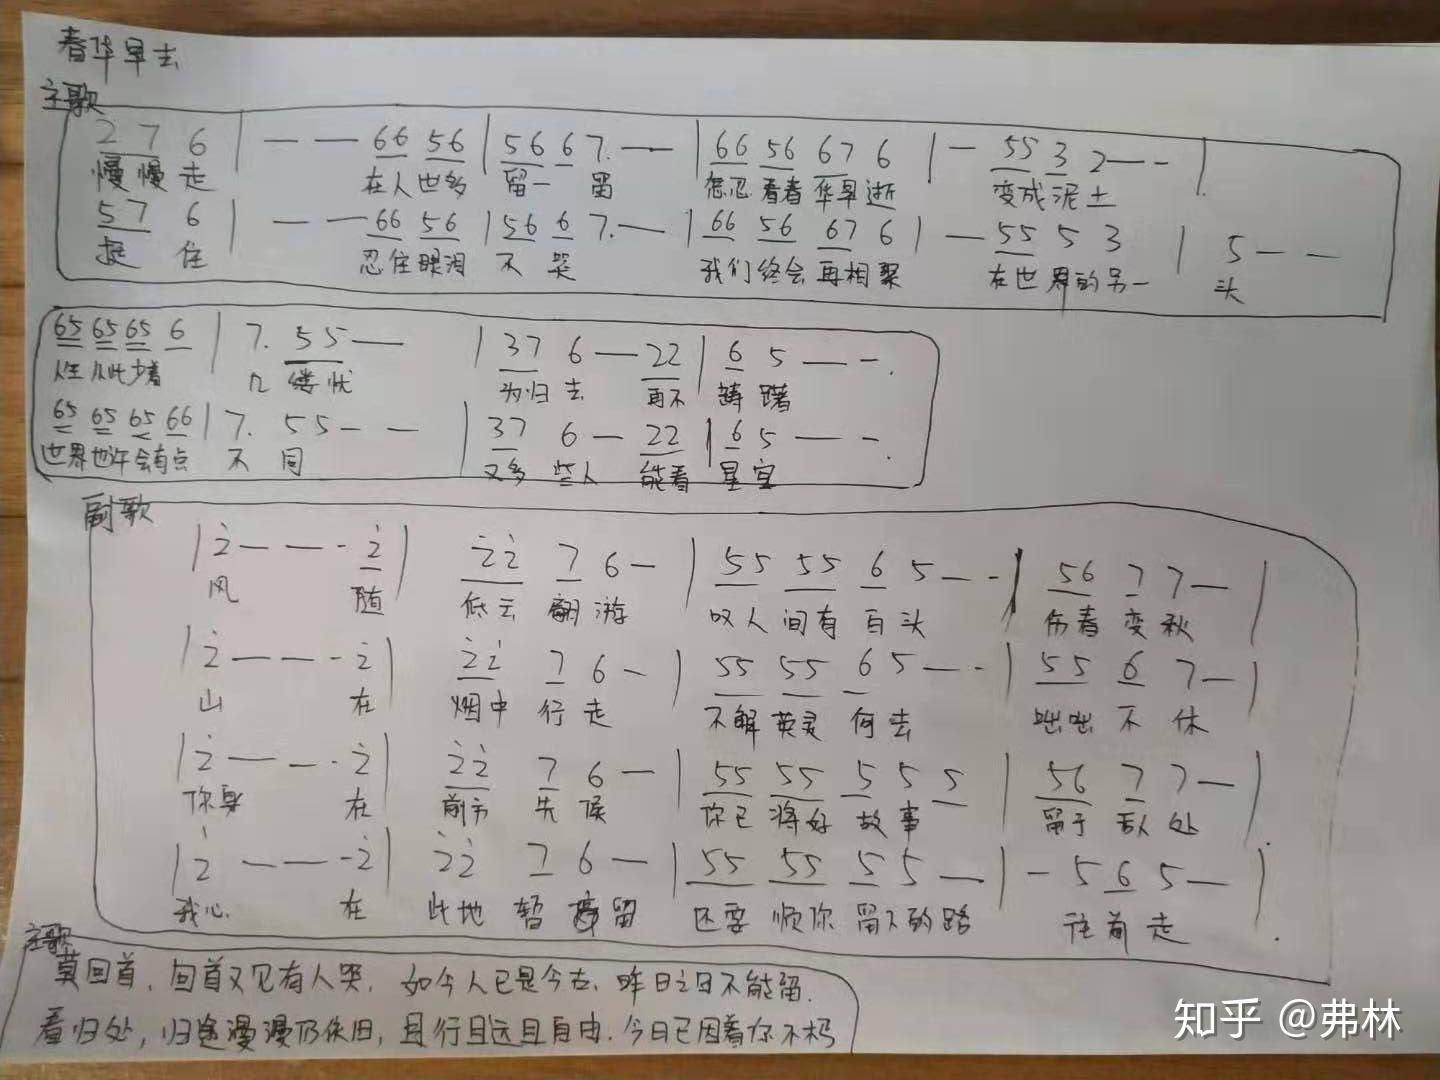 春华早去
主歌
2 7 6 | — — 66 56 | 56 6 7. — | 66 56 67 6 | — 55 3 2 — - |
慢慢 走 在人世多 留一 留 怎忍看春华早逝 变成泥土
57 6 | — — 66 56 | 56 6 7. — | 66 56 67 6 | — 55 5 3 | 5 — —
挺 住 忍住眼泪 不 哭 我们终会再相聚 在世界的另一 头
65 65 65 6 | 7. 55 — | 37 6 — 22 | 6 5 — - .
人生从此少着 几 缕忧 为归去 再不 踌躇
65 65 65 66 | 7. 55 — — | 37 6 — 22 | 6 5 — - .
世界也许会有点 不 同 又多 些人 能看 星空
副歌
| 2̇ — — - 2̇ | 2̇2̇ 7 6 — | 55 55 6 5 — - | 56 7 7 — |
风 随 低云 翻 游 叹人 间有 百 头 伤春 变 秋
| 2̇ — — - 2̇ | 2̇2̇ 7 6 — | 55 55 6 5 — - | 55 6 7 — |
山 在 烟中 行 走 不解 英灵 何 去 咄咄 不 休
| 2̇ — — . 2̇ | 2̇2̇ 7 6 — | 55 55 5 5 5 | 56 7 7 — |
你身 在 前方 先 候 你已 将好 故 事 留于 敌 处
| 2̇ — — - 2̇ | 2̇2̇ 7 6 — | 55 55 5 5 — | - 5 6 5 — |
我心 在 此地 暂 停留 还要 顺你 留下的路 往前走
主歌
莫回首，回首又见有人哭，如今人已是今古，昨日之日不能留.
看归处，归途漫漫仍依旧，且行且远且自由.今日已因着你不朽
知乎 @弗林